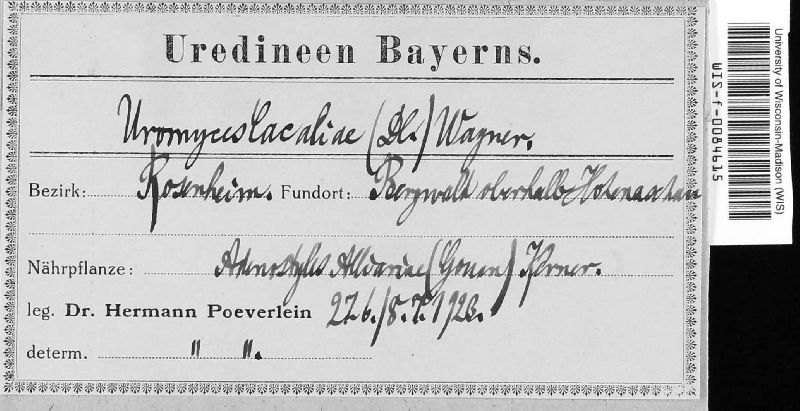 Uredineen Bayerns.
Uromyces Cacaliae (DC.) Wagner.
Bezirk: Rosenheim. Fundort: Bergwald oberhalb Hohenaschau
Nährpflanze: Adenostyles Alliariae (Gouan) Kerner.
leg. Dr. Hermann Poeverlein 27.6./8.7.1923.
determ. " ".
University of Wisconsin-Madison (WIS)
WIS-f-0084615